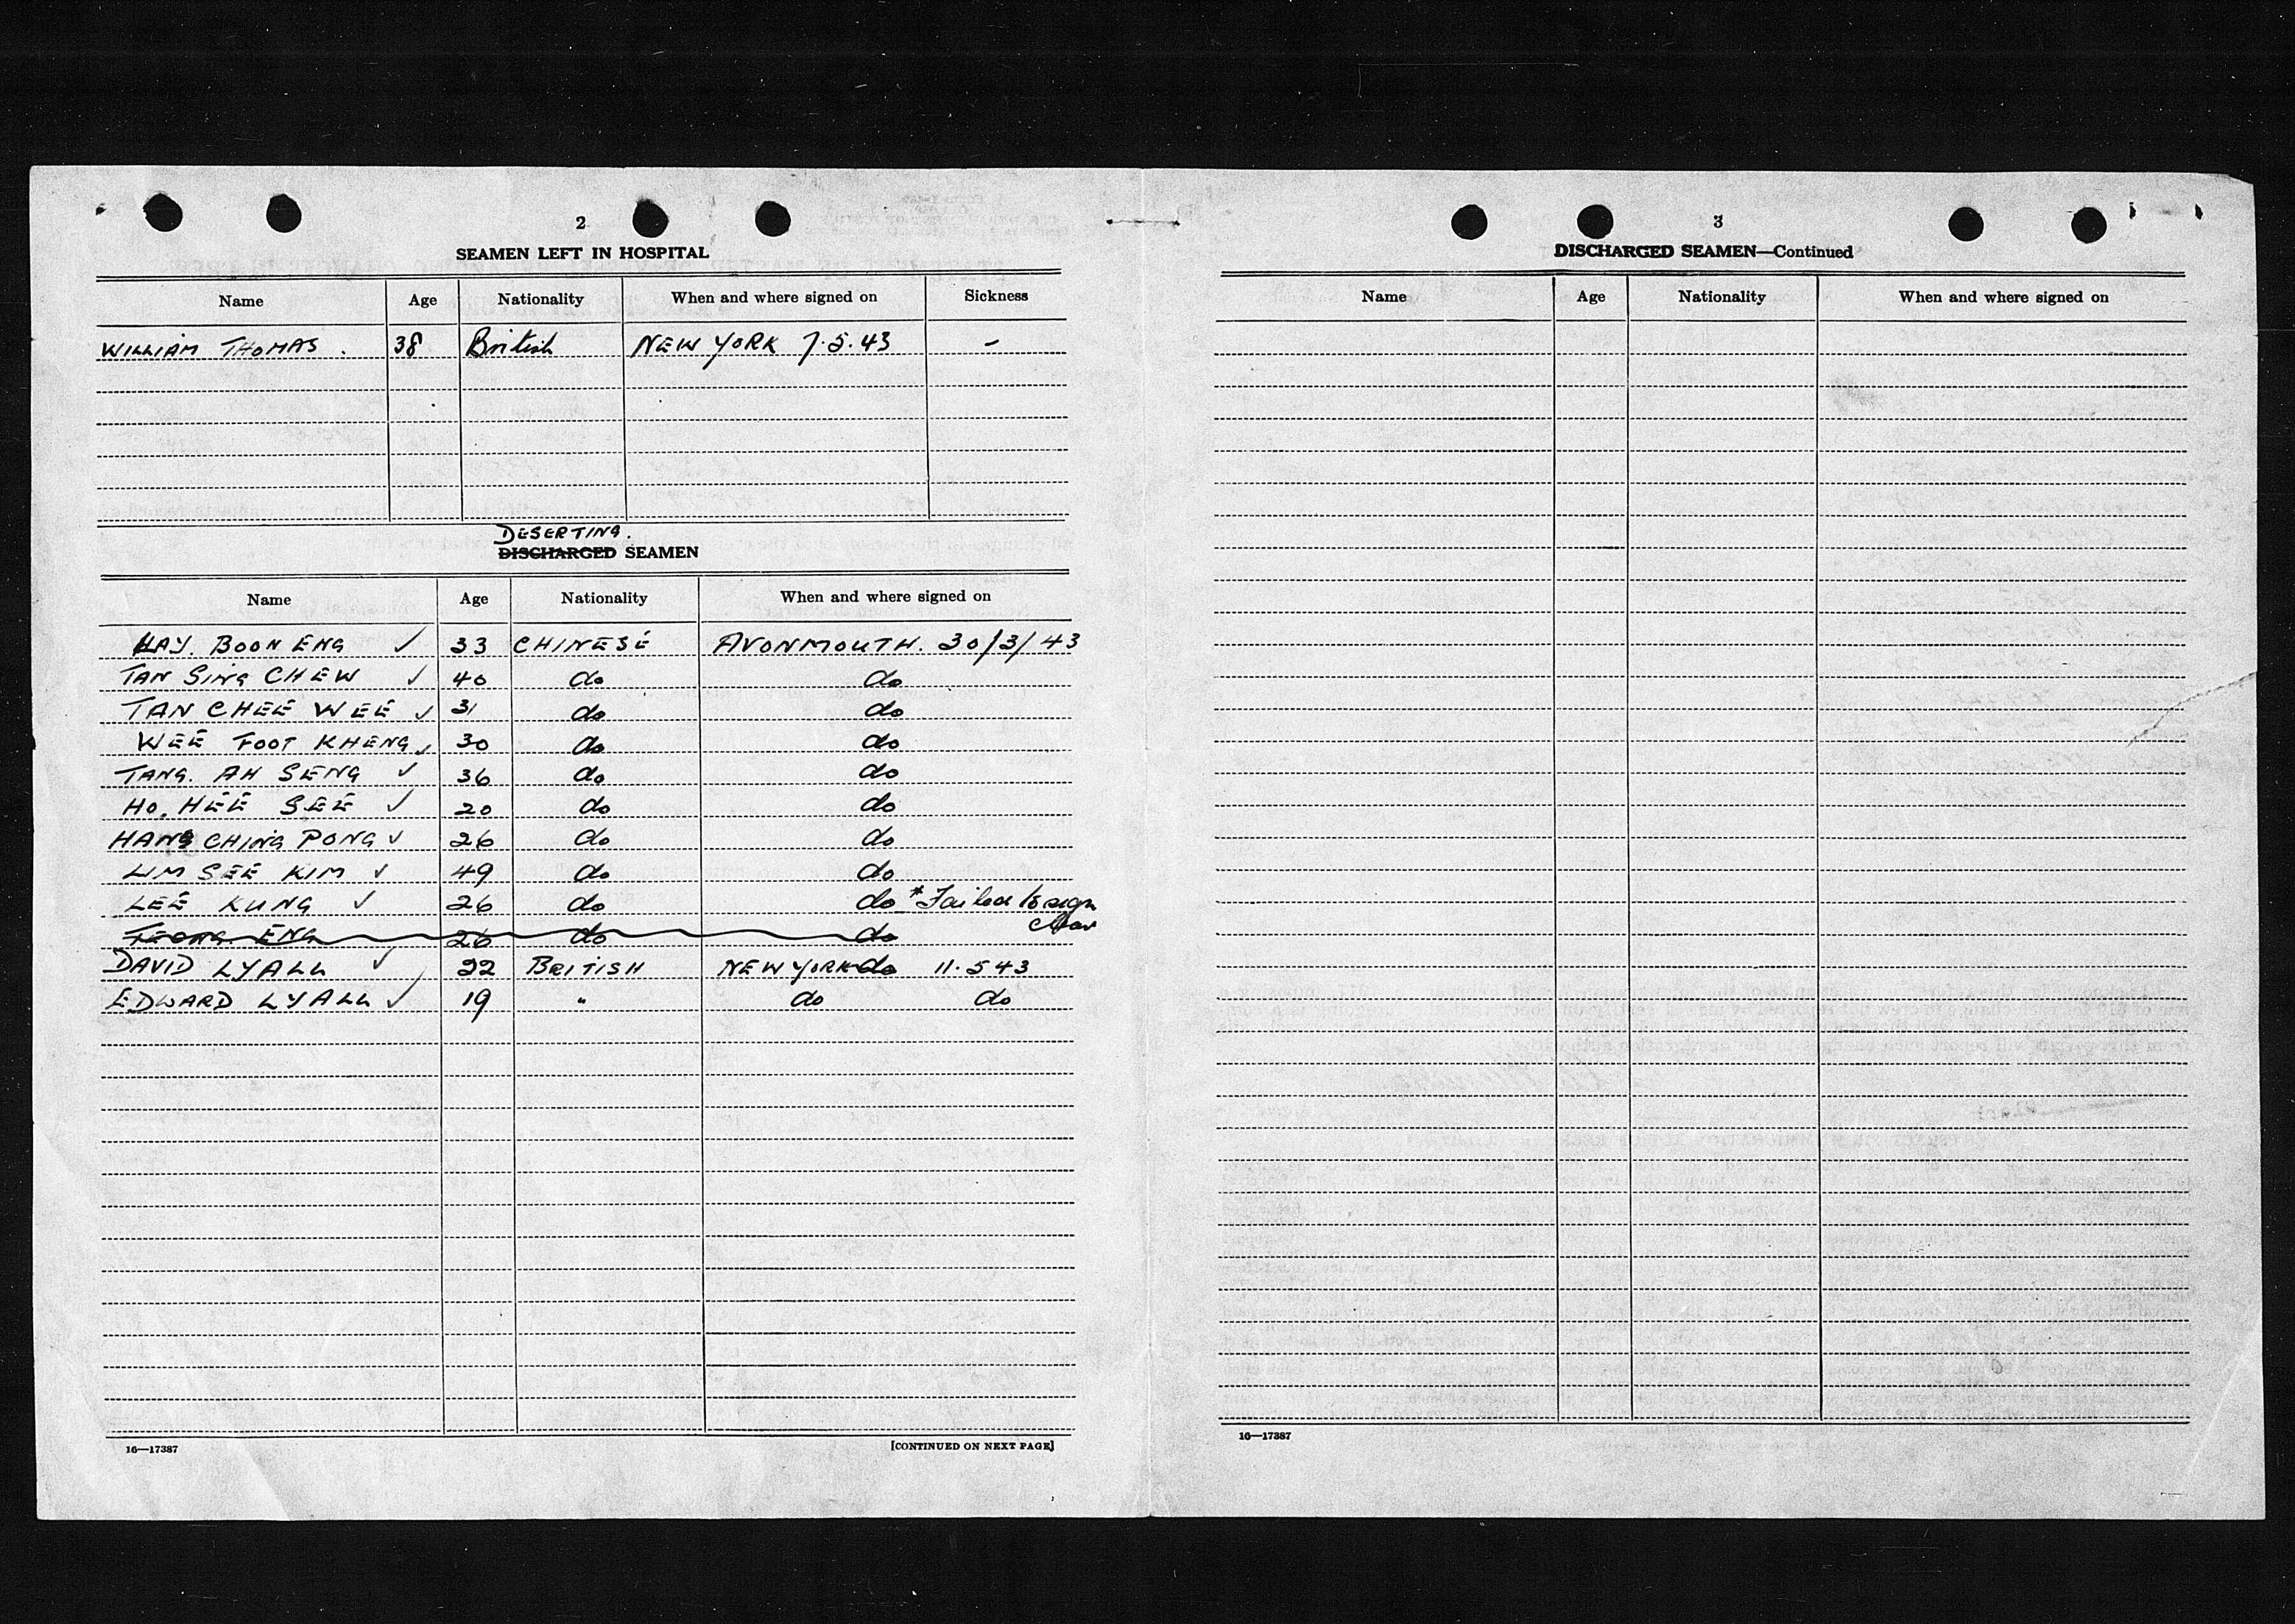 2
SEAMEN LEFT IN HOSPITAL
Name Age Nationality When and where signed on Sickness
WILLIAM THOMAS . 38 British NEW YORK 7.5.43 –
DESERTING.
DISCHARGED SEAMEN
Name Age Nationality When and where signed on
HAY. BOON ENG ✓ 33 CHINESE AVONMOUTH. 30/3/43
TAN SING CHEW ✓ 40 do do
TAN CHEE WEE ✓ 31 do do
WEE FOOT KHENG ✓ 30 do do
TANG. AH SENG ✓ 36 do do
HO. HEE SEE ✓ 20 do do
HANG CHING PONG ✓ 26 do do
LIM SEE KIM ✓ 49 do do
LEE KUNG ✓ 26 do do * Failed to sign
TEONG ENG 26 do do
DAVID LYALL ✓ 22 BRITISH NEW YORK do 11.5 43
EDWARD LYALL ✓ 19 " do do
16—17387 [CONTINUED ON NEXT PAGE]
3
DISCHARGED SEAMEN—Continued
Name Age Nationality When and where signed on
16—17387